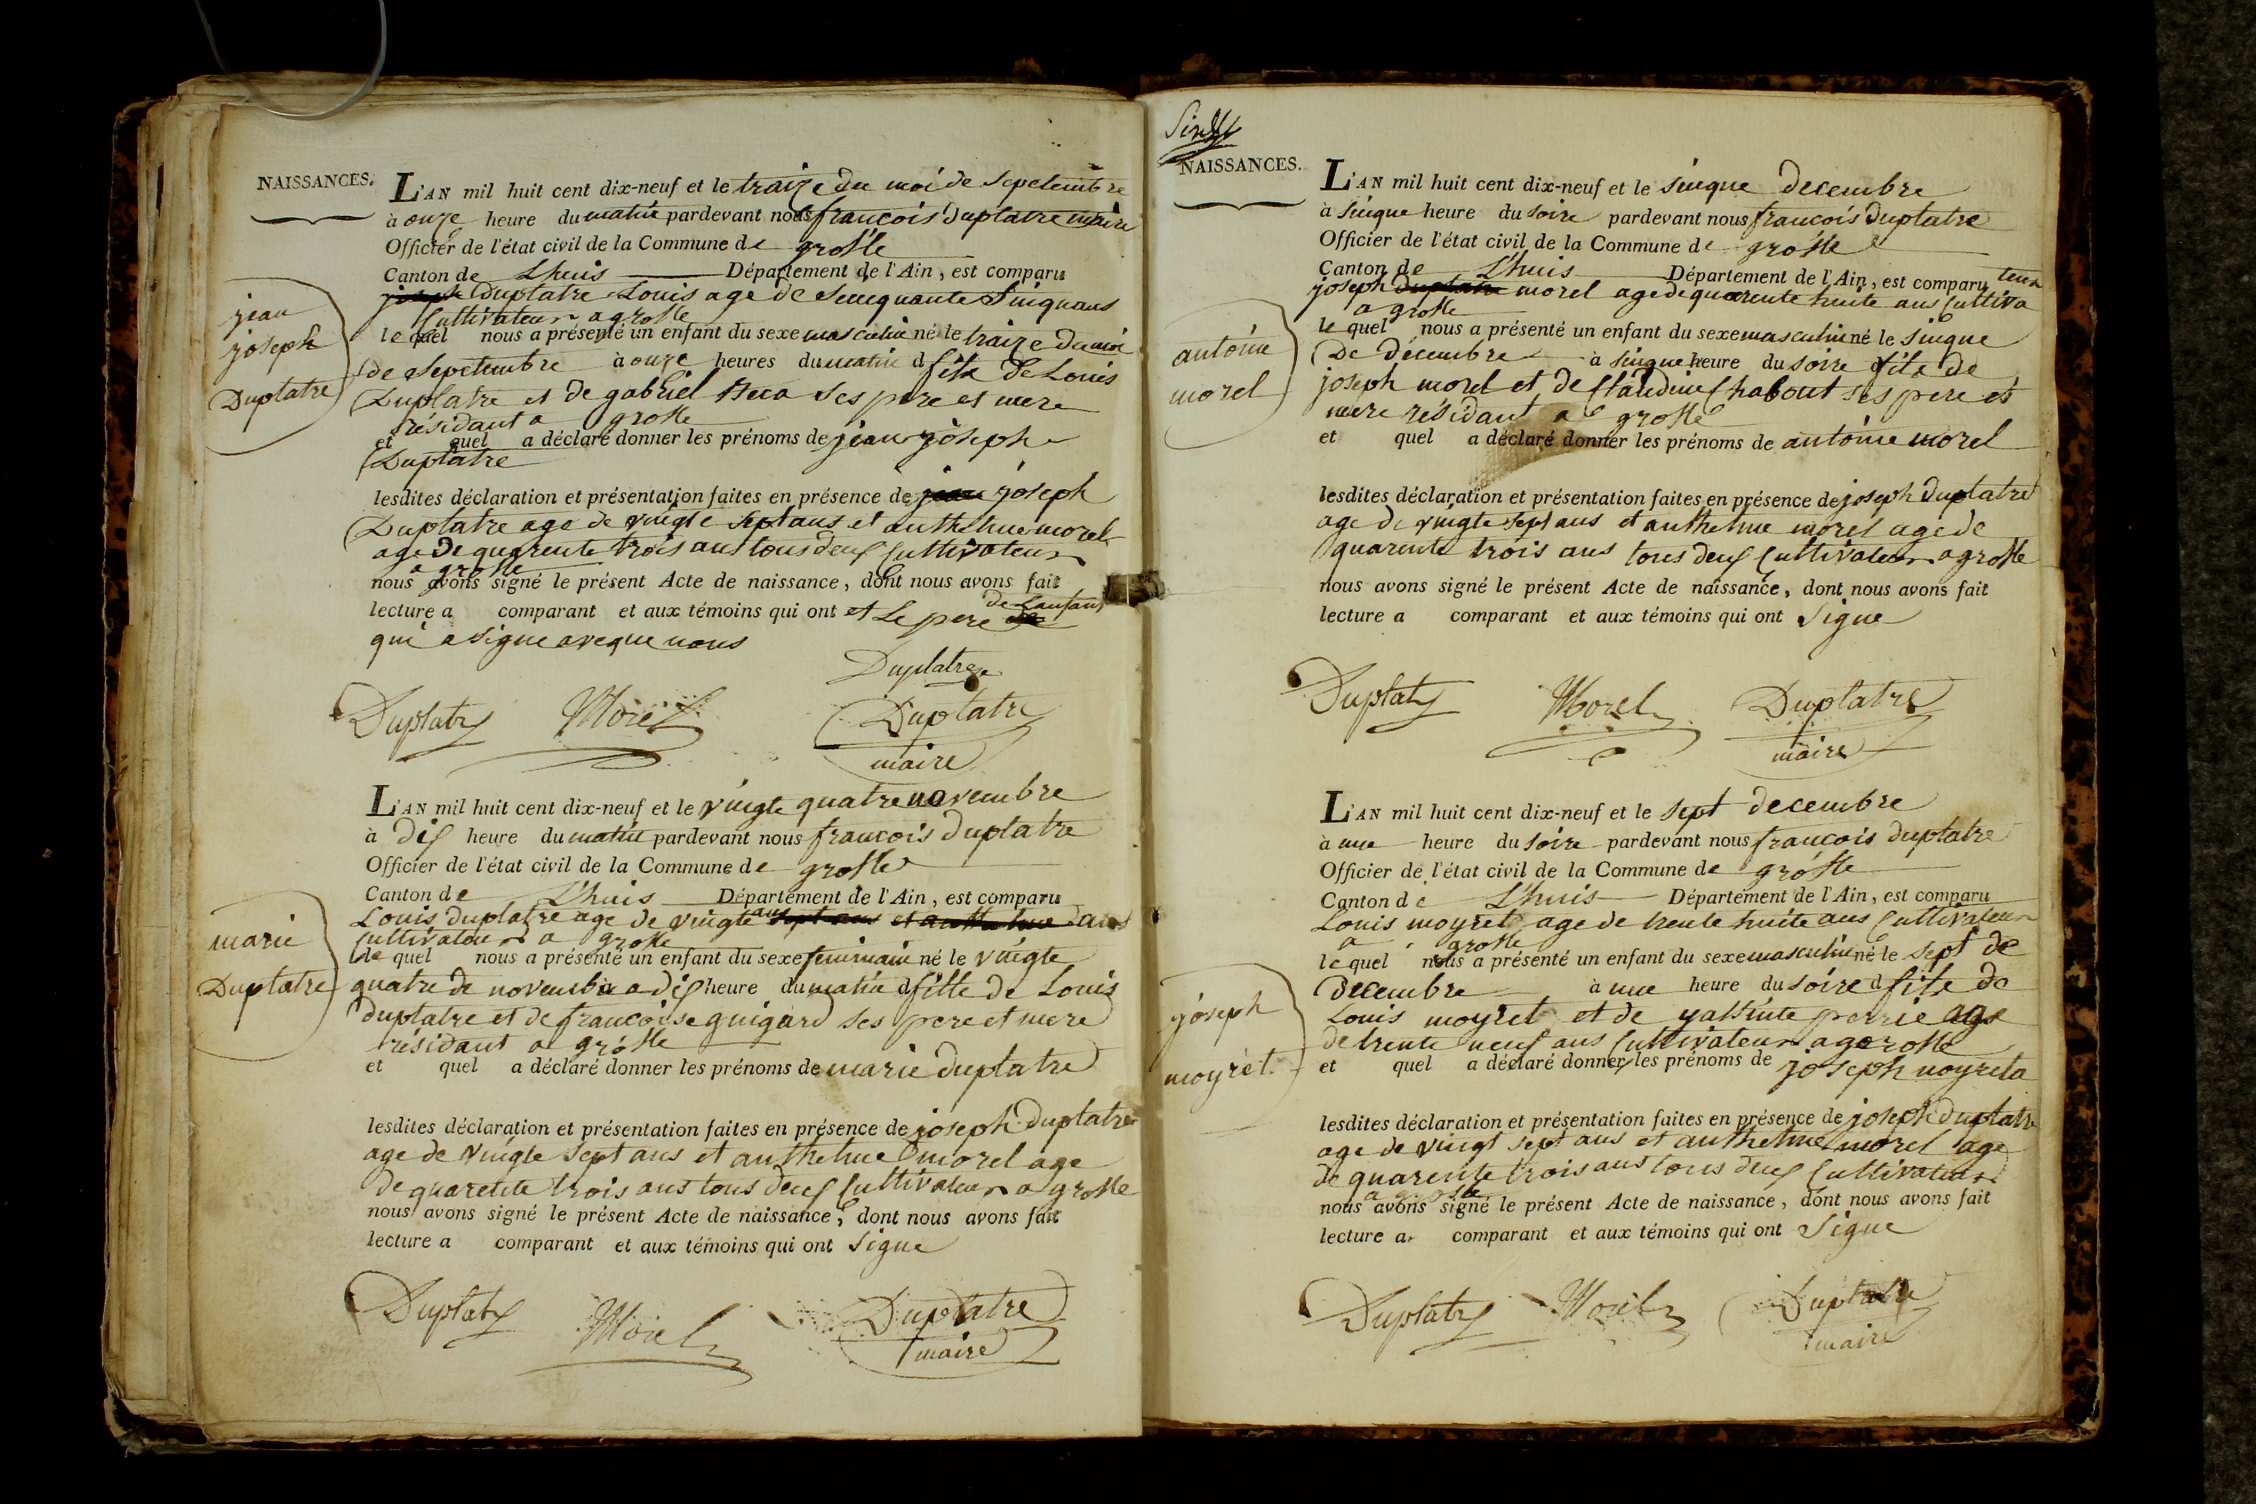 NAISSANCES.
L'AN mil huit cent dix-neuf et le traize du moi de Sepetembre
à onze heure du matin pardevant nous francois Duplatre maire
Officier de l'état civil de la Commune de groslle
Canton de Lhuis Département de l'Ain, est comparu
joseph Duplatre Louis age de Seuiquante Suiquans
Cultivateur a groslle
le quel nous a présenté un enfant du sexe masculin né le traize du moi
de Sepetembre à onze heures du matin d fils de Louis
Duplatre et de gabriel ses pere et mere
résidant a groslle
et quel a déclaré donner les prénoms de jean joseph
Duplatre
lesdites déclaration et présentation faites en présence de jean joseph
Duplatre age de vingte sept ans et anthelme morel
age de quarente trois ans tous deux Cultivateur
a groslle
nous avons signé le présent Acte de naissance, dont nous avons fait
lecture a comparant et aux témoins qui ont et Le pere de de Lanfant
qui a signe aveque nous
jean
joseph
Duplatre
Duplatre
Duplatre Morel Duplatre
maire
L'AN mil huit cent dix-neuf et le vingte quatre novembre
à dix heure du matin pardevant nous francois duplatre
Officier de l'état civil de la Commune de groslle
Canton de Lhuis Département de l'Ain, est comparu
Louis duplatre age de vingte ans sept ans et anthelme ans
Cultivateur a groslle
le quel nous a présenté un enfant du sexe feminain né le vingte
quatre de novembre a dix heure du matin d fille de Louis
duplatre et de francoise guigard ses pere et mere
résidant a groslle
et quel a déclaré donner les prénoms de marie duplatre
lesdites déclaration et présentation faites en présence de joseph duplatre
age de vingte sept ans et anthelme morel age
de quarente trois ans tous deux Cultivateur a groslle
nous avons signé le présent Acte de naissance, dont nous avons fait
lecture a comparant et aux témoins qui ont signe
marie
Duplatre
Duplatre Morel Duplatre
maire
NAISSANCES.
L'AN mil huit cent dix-neuf et le sinque decembre
à sinque heure du soire pardevant nous francois Duplatre
Officier de l'état civil de la Commune de groslle
Canton de Lhuis Département de l'Ain, est comparu
joseph duplatre morel age de quarente huite ans Cultivateur
a groslle
le quel nous a présenté un enfant du sexe masculin né le sinque
De décembre à sinque heure du soire fils de
joseph morel et de Claudine Chabout ses pere et
mere résidant a groslle
et quel a déclaré donner les prénoms de antoine morel
lesdites déclaration et présentation faites en présence de joseph Duplatre
age de vingte sept ans et anthelme morel age de
quarente trois ans tous deux Cultivateur a groslle
nous avons signé le présent Acte de naissance, dont nous avons fait
lecture a comparant et aux témoins qui ont Signe
antoine
morel
Duplatre Morel Duplatre
maire
L'AN mil huit cent dix-neuf et le sept decembre
à une heure du soire pardevant nous francois duplatre
Officier de l'état civil de la Commune de groslle
Canton de Lhuis Département de l'Ain, est comparu
Louis moyret age de trente huite ans Cultivateur
a groslle
le quel nous a présenté un enfant du sexe masculin né le sept de
decembre à une heure du soire d fils de
Louis moyret et de yassinte perrie age
de trente neuf ans Cultivateur a groslle
et quel a déclaré donner les prénoms de joseph moyreta
lesdites déclaration et présentation faites en présence de joseph duplatre
age de vingt sept ans et anthelme morel age
de quarente trois ans tous deux Cultivateur
a groslle
nous avons signé le présent Acte de naissance, dont nous avons fait
lecture a comparant et aux témoins qui ont Signe
joseph
moyrét.
Duplatre Morel Duplatre
maire